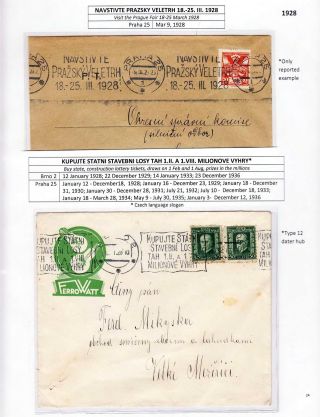 NAVSTIVTE PRAZSKY VELETRH 18.-25. III. 1928
Visit the Prague Fair 18-25 March 1928
Praha 25 | Mar 9, 1928
1928
NAVŠTIVTE
PRAŽSKÝ VELETRH
18.-25. III. 1928
PRAHA 25
*Only
reported
example
Okresní správní komise
KUPUJTE STATNI STAVEBNI LOSY TAH 1.II. A 1.VIII. MILIONOVE VYHRY*
Buy state, construction lottery tickets, drawn on 1 Feb and 1 Aug, prizes in the millions
Brno 2 | 12 January 1928; 22 December 1929; 14 January 1933; 23 December 1936
Praha 25 | January 12 - December18, 1928; January 16 - December 23, 1929; January 18 - December
31, 1930; January 30 - December 28, 1931; July 21, 1932; January 10 - December 18, 1933;
January 18 - March 28, 1934; May 9 - July 30, 1935; January 3- December 12, 1936
* Czech language slogan
*Type 12
dater hub
KUPUJTE STÁTNÍ
STAVEBNÍ LOSY
TAH 1.II. a 1.
MILIONOVÉ VÝHRY
FERROWATT
Ctěný pan
Ferd.
Velké Meziříčí